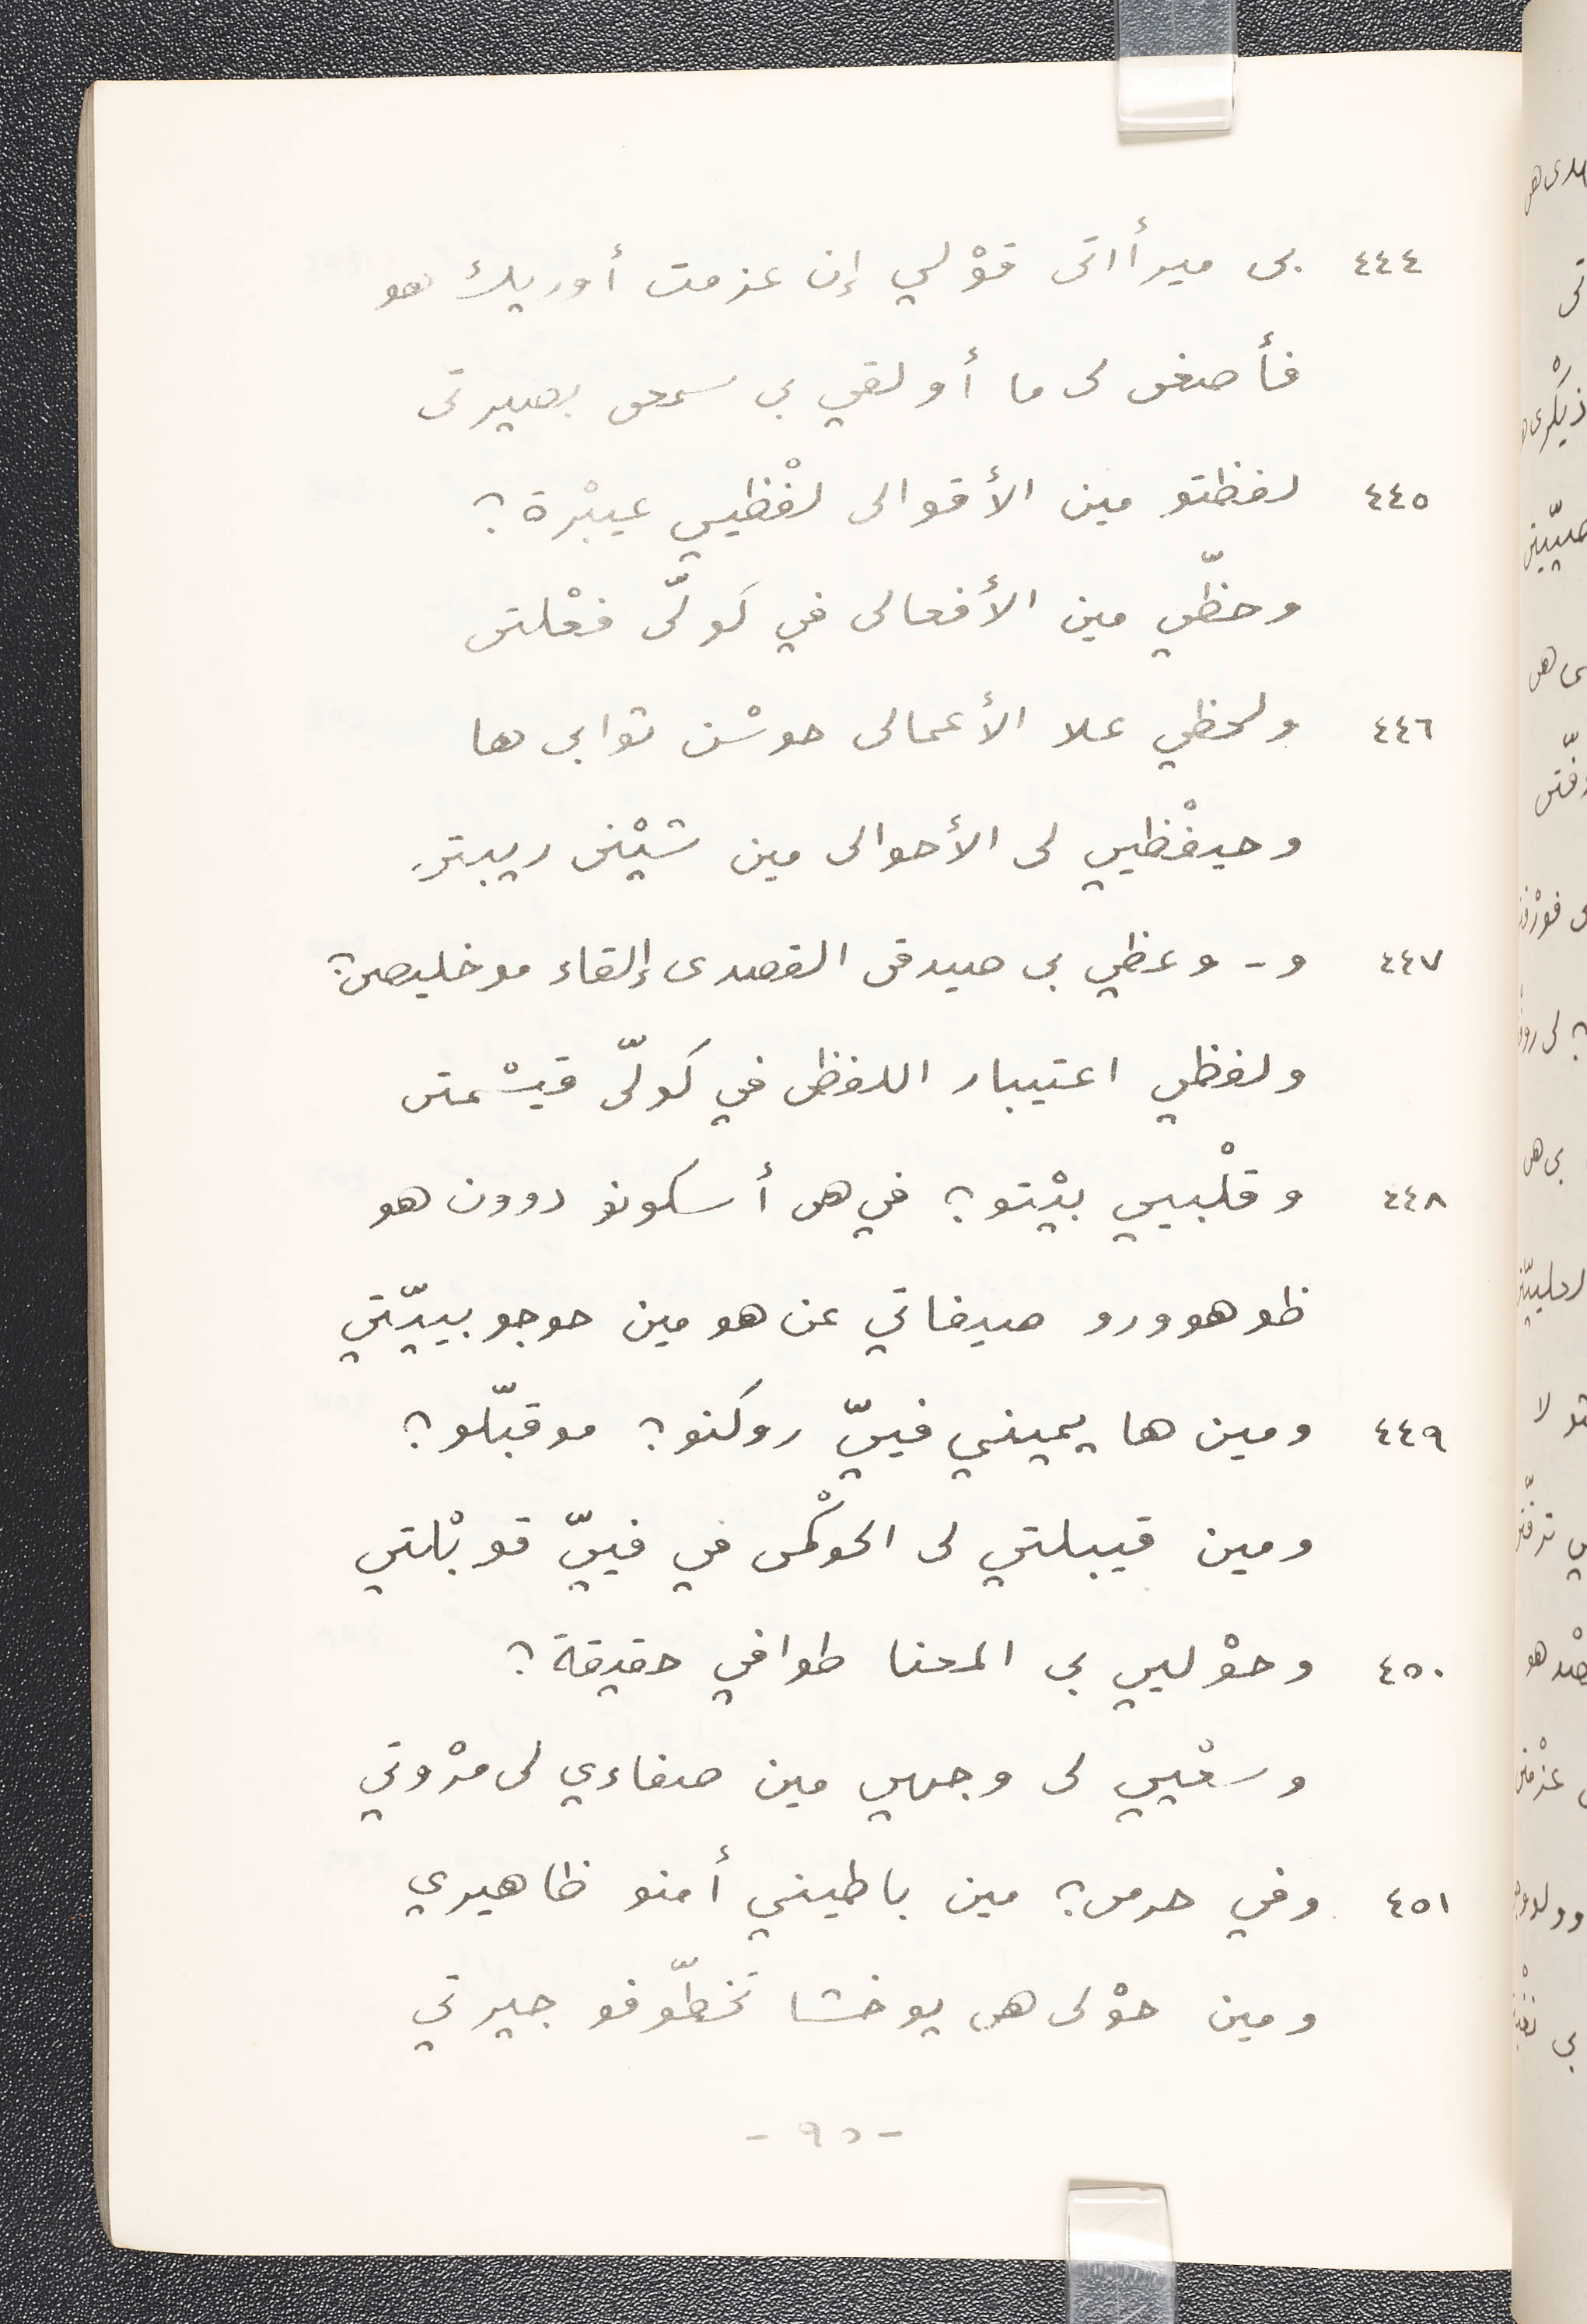 ٤٤٤ بى ميرأاتى قوْلي إن عزمت أوريك هو
فأصغى لى ما أولقي بى سمعى بصيرتى
٤٤٥ لفظتو مين الأقوالى لفْظيي عيبْرة؟
وحظّي مين الأفعالى في كولّى فعْلتى
٤٤٦ ولحظي علا الأعمالى حوسْن توابى ها
وحيفْظيي لى الأحوالى مين شيْنى ريبتى
٤٤٧ و - وعظي بى صيدقى القصدى إلقاء موخليصى؟
ولفظي اعتيبار اللفظى في كولّى قيسْمتى
٤٤٨ وقلْبيي بيْتو؟ في هى أسكونو دوون هو
ظوهوورو صيفاتي عن هو مين حوجوبييّتي
٤٤٩ ومين ها يميني فييّ روكنو؟ موقبّلو؟
ومين قيبلتي لى الحوكْمى في فييّ قوبْلتي
٤٥٠ وحوْليي بى المعنا طوافي حقيقة؟
وسعْيي لى وجهي مين صفاءي لى مرْوتي
٤٥١ وفي حرمى؟ مين باطيني أمنو ظاهيري
ومين حوْلى هى يوخشا تخطّوفو جيرتي
- ٩٥ -